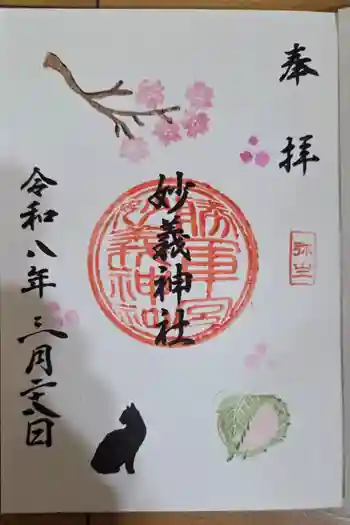 奉拝
妙義神社
令和八年三月二十八日
弥生